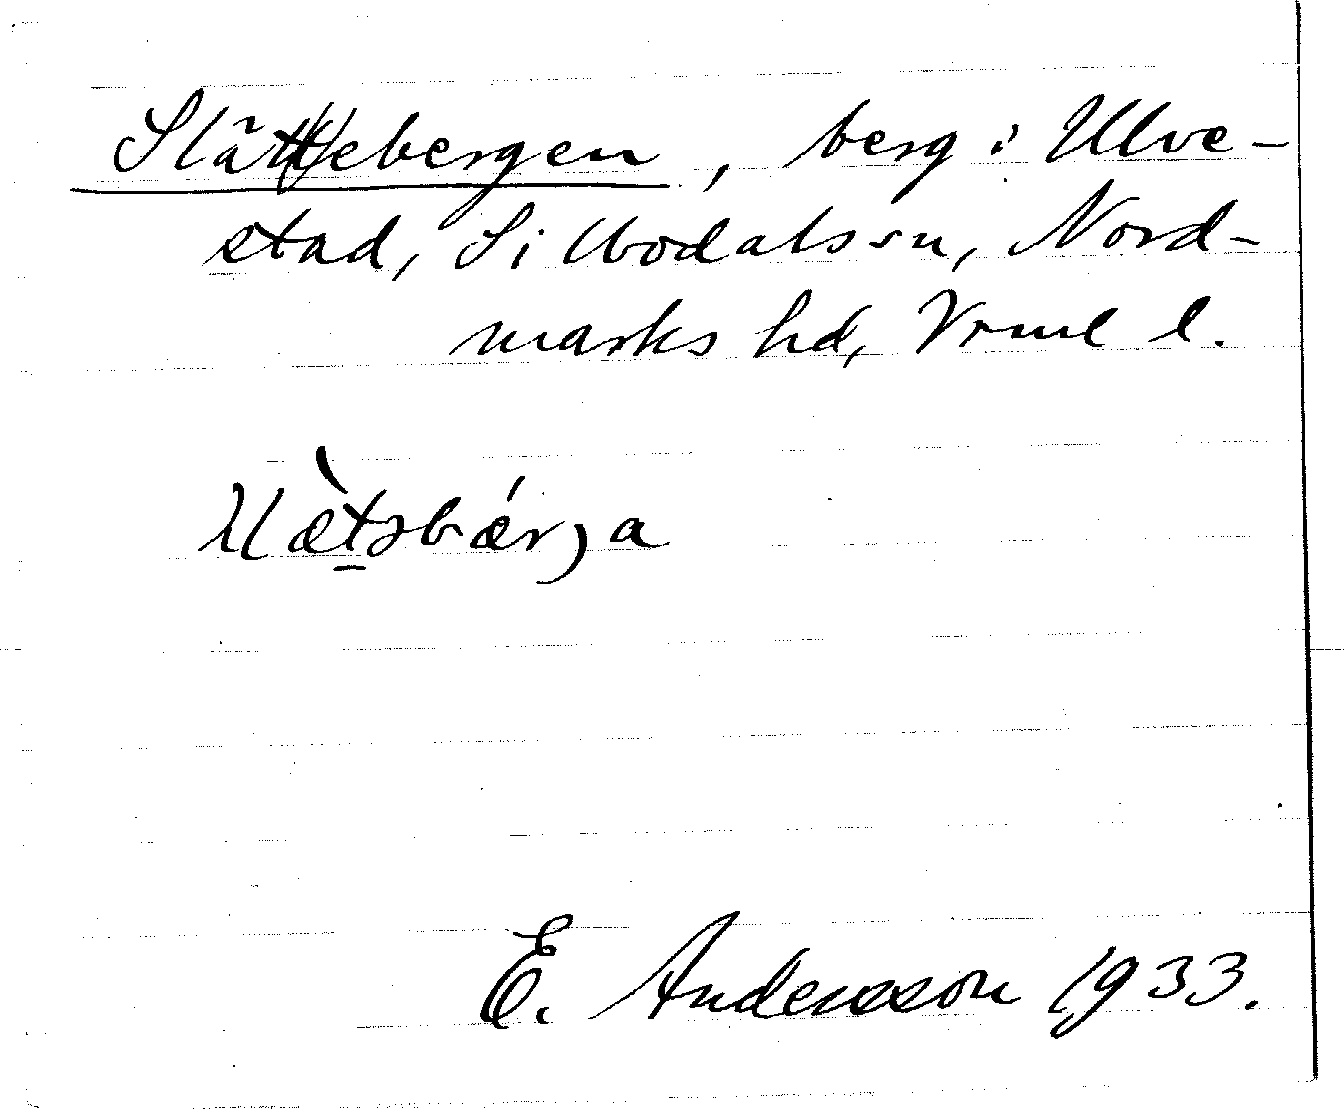 Slätt(e)bergen, berg i Ulve-
stad, Silbodals sn, Nord-
marks hd, Vrml l.
E. Andersson 1933.